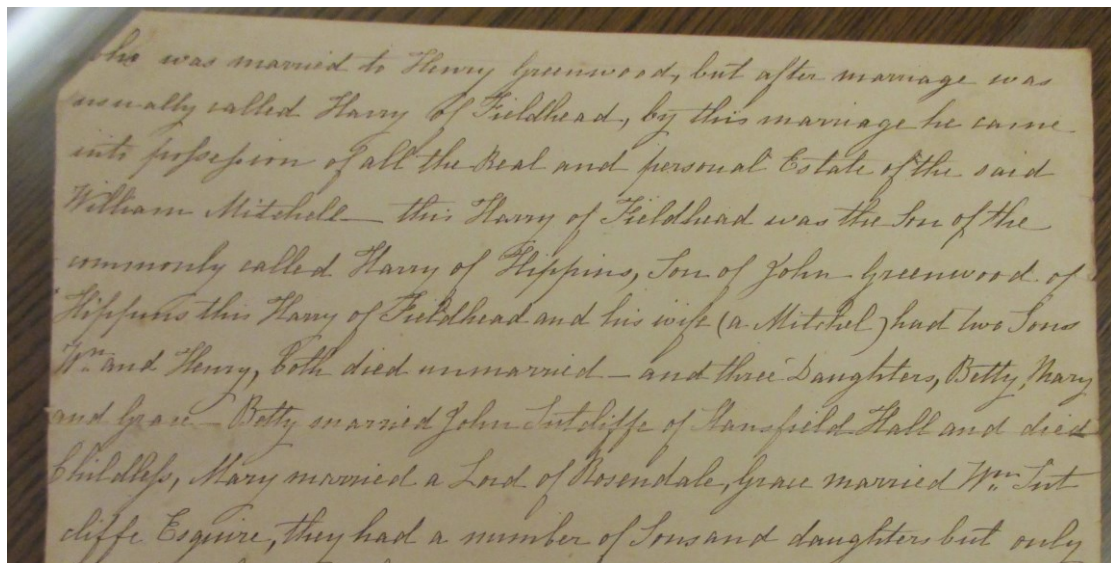 She was married to Henry Greenwood, but after marriage was
usually called Harry of Fieldhead, by this marriage he came
into possession of all the Real and personal Estate of the said
William Mitchell — this Harry of Fieldhead was the Son of the
commonly called Harry of Hippins, Son of John Greenwood of
Hippins this Harry of Fieldhead and his wife (a Mitchel) had two Sons
Wm. and Henry, both died unmarried — and three Daughters, Betty, Mary
and Grace — Betty married John Sutcliffe of Stansfield Hall and died
Childless, Mary married a Lord of Rosendale, Grace married Wm. Sut
cliffe Esquire, they had a number of Sons and daughters but only